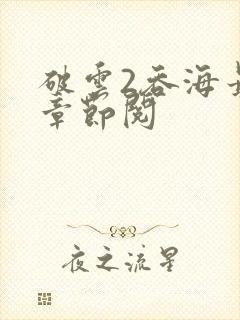 破雲2吞海
章節閱
夜之流星